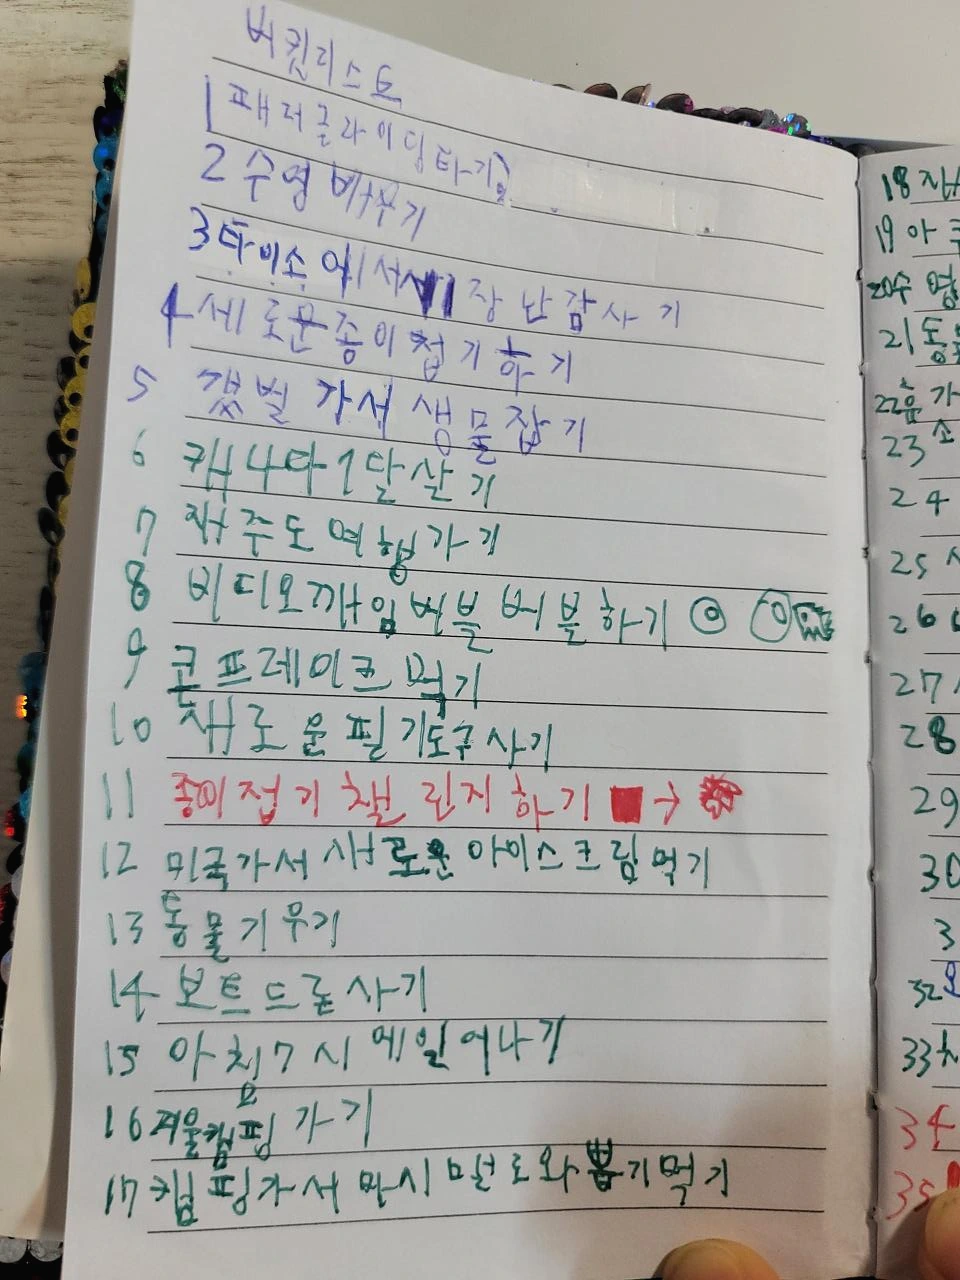 버킷리스트
1 패러글라이딩타기
2 수영 배우기
3 다이소에서 장난감사기
4 세로운종이접기하기
5 갯벌 가서 생물잡기
6 캐나다1달살기
7 재주도여행가기
8 비디오께임버블버블하기
9 콘프레이크 먹기
10 새로운필기도구사기
11 종이접기챌린지하기 ■→
12 미국가서 새로운아이스크림먹기
13 동물기우기
14 보트드론사기
15 아침7시에일어나기
16 겨울캠핑 가기
17 캠핑가서 마시멜로와뽑기먹기
18
19 아
20 수영
21 동
22 가
23 소
24
25
26
27
28
29
30
3
32
33
34
35